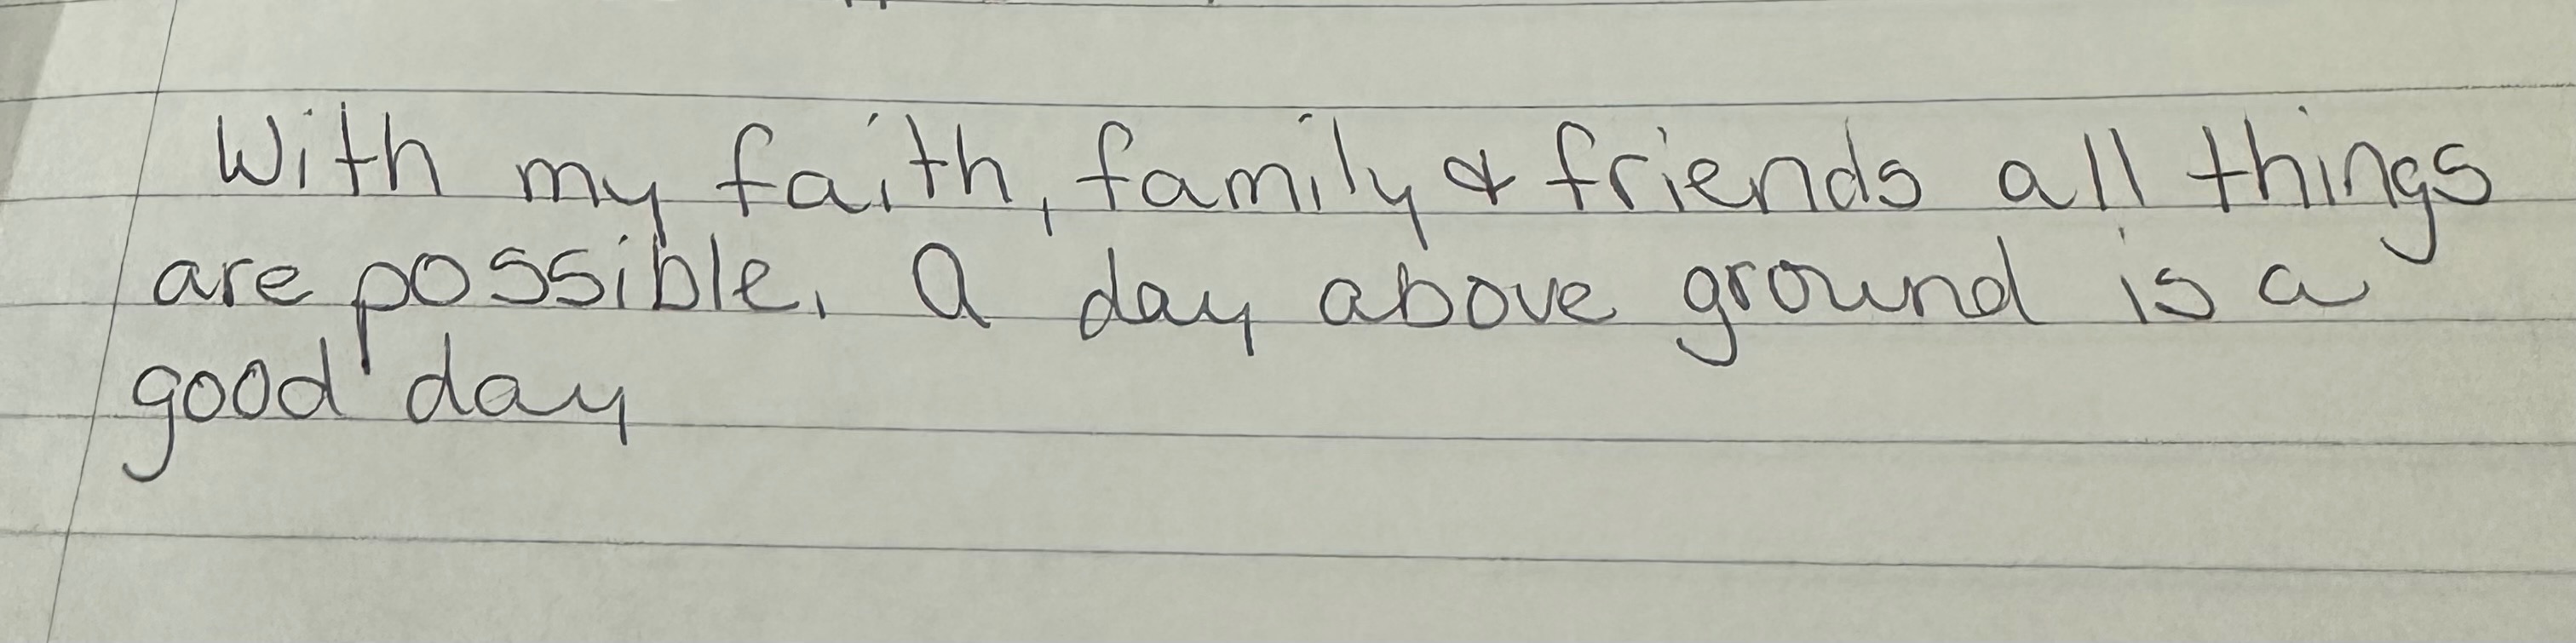 With my faith, family & friends all things
are possible. A day above ground is a
good day